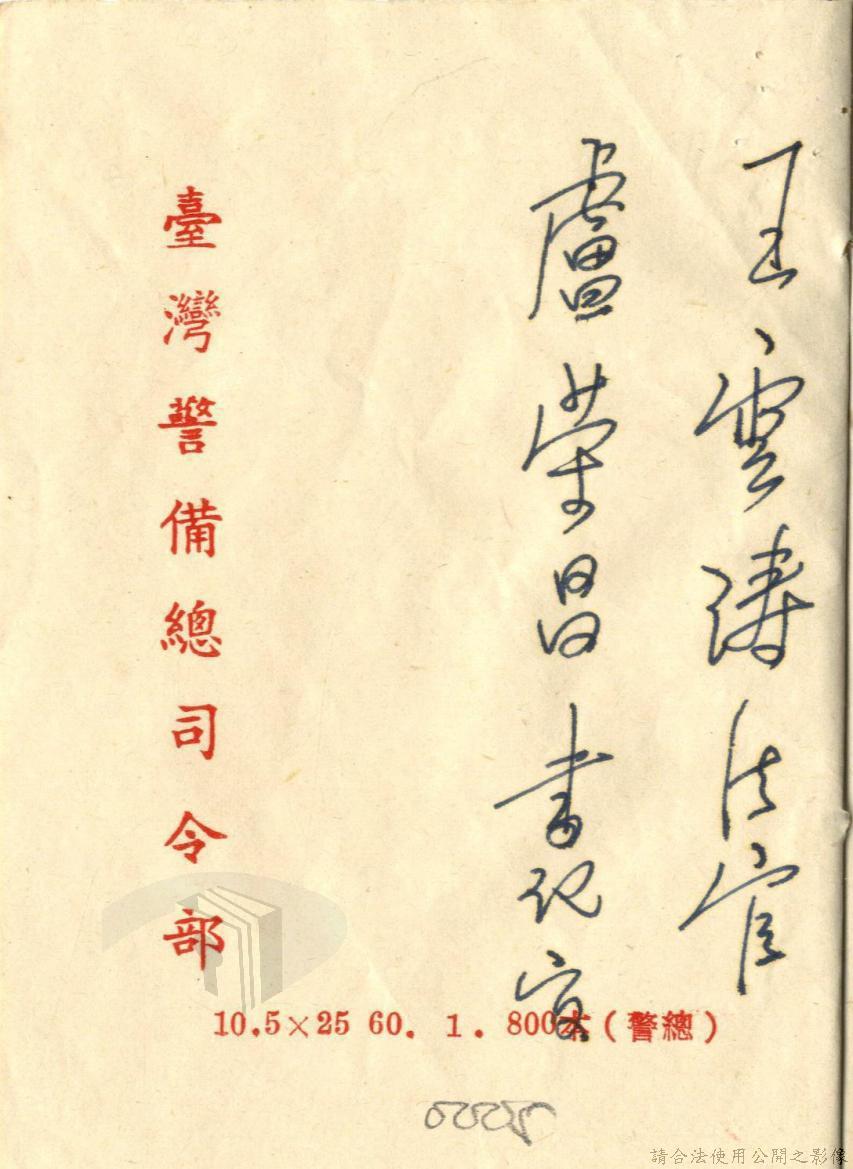 王雲濤法官
盧榮昌書記官
臺灣警備總司令部
10.5×25 60. 1. 800本(警總)
請合法使用公開之影像